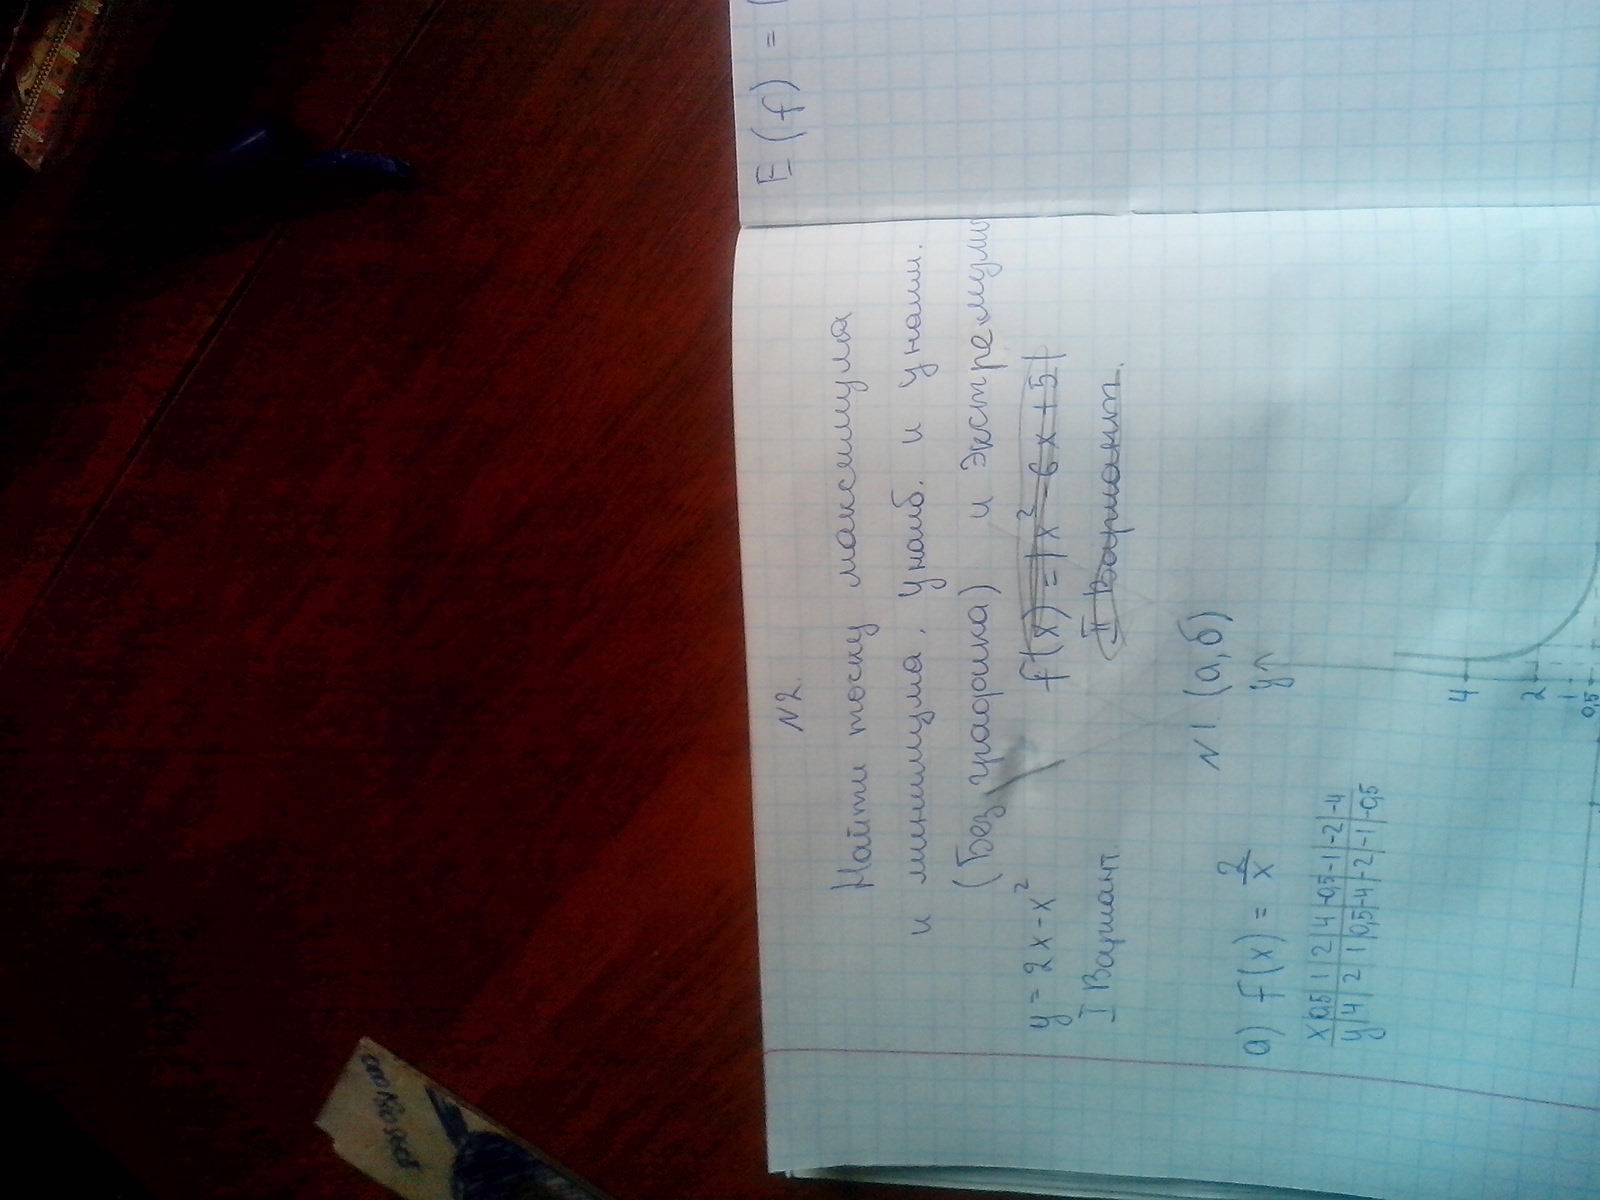 N2.
Найти точку максимума
и минимума, у наиб. и у наим.
(Без графика) и экстремумы
y = 2x - x²
f(x) = |x² - 6x + 5|
I Вариант.
II Вариант.
N1 (а,б)
а) f(x) = 2/x
y
x 0,5 1 2 4 -0,5 -1 -2 -4
y 4 2 1 0,5 -4 -2 -1 -0,5
4
2
1
0,5
E(f) = (